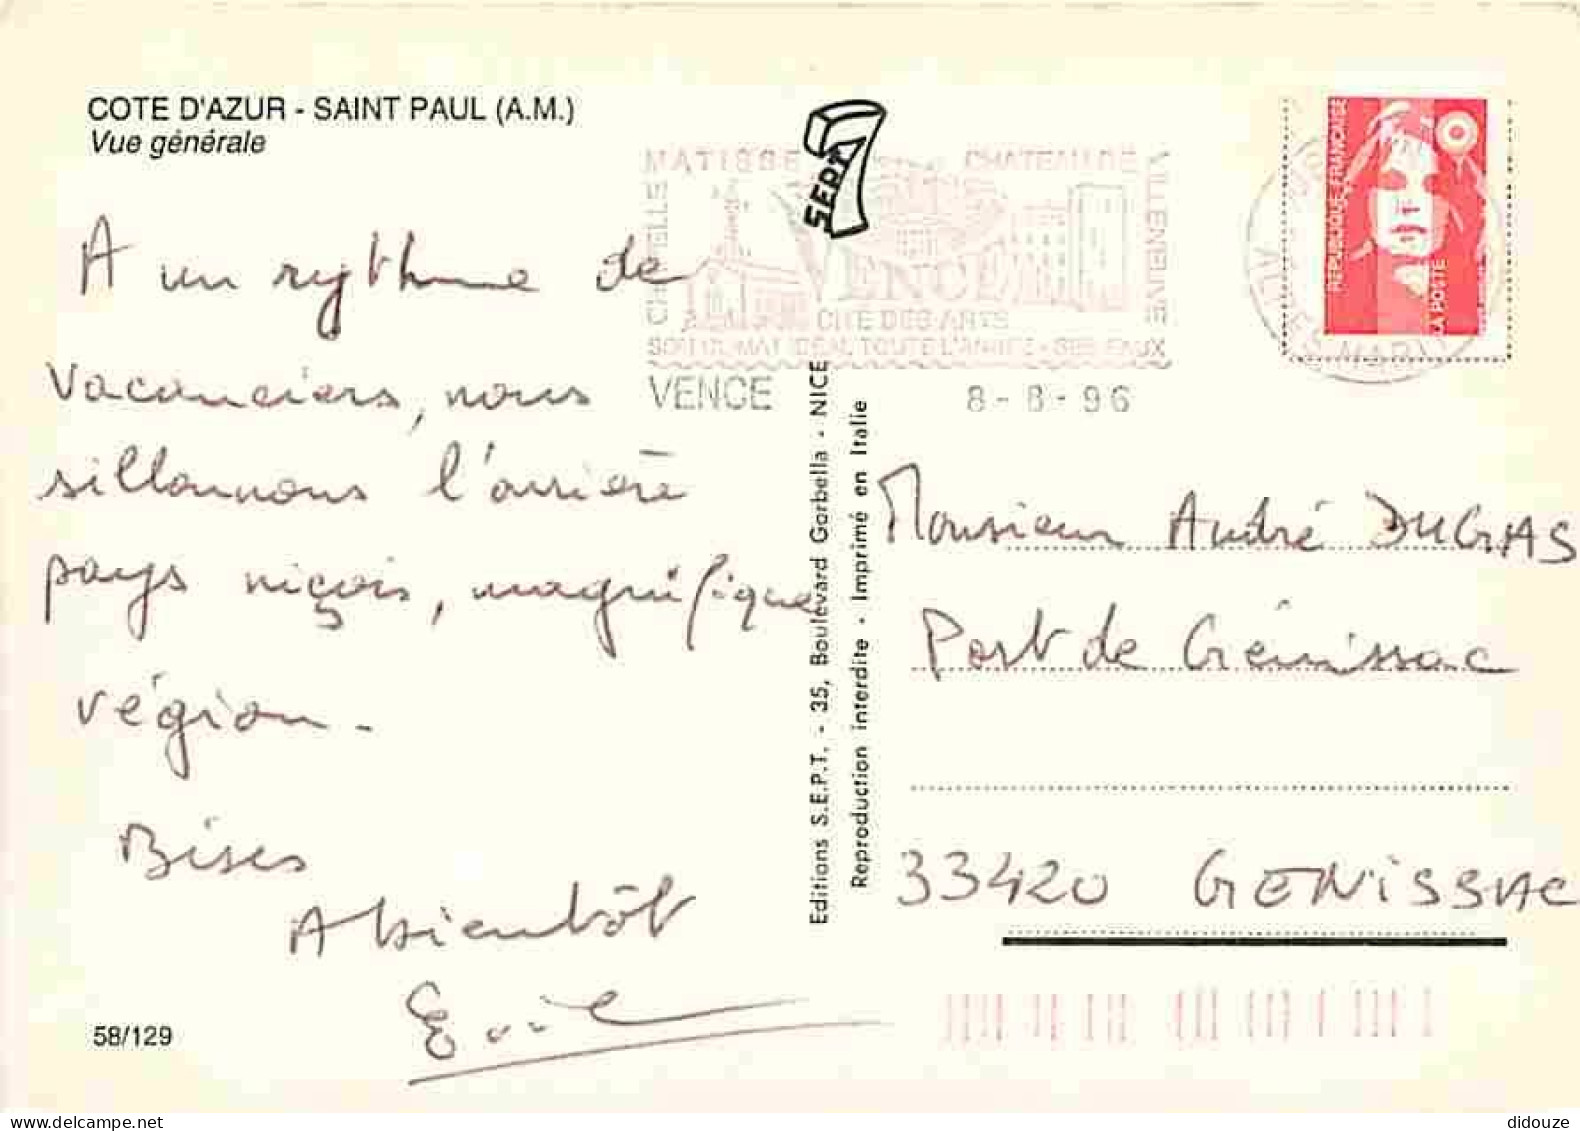 COTE D'AZUR - SAINT PAUL (A.M.)
Vue générale
7 SEPT
MATISSE
CHATEAU DE
VILLENEUVE
CHAPELLE
VENCE
CITE DES ARTS
IDEAL TOUTE L'ANNEE
VENCE 8-8-96
REPUBLIQUE FRANÇAISE
LA POSTE
ALPES MAR
A un rythme de
vacanciers, nous
sillonnons l'arrière
pays niçois, magnifique
région.
Bises
A bientôt
Editions S.E.P.T. - 35, Boulevard Gorbella - NICE
Reproduction interdite - Imprimé en Italie
Monsieur André DUGAS
Port de Génissac
33420 GENISSAC
58/129
didouze